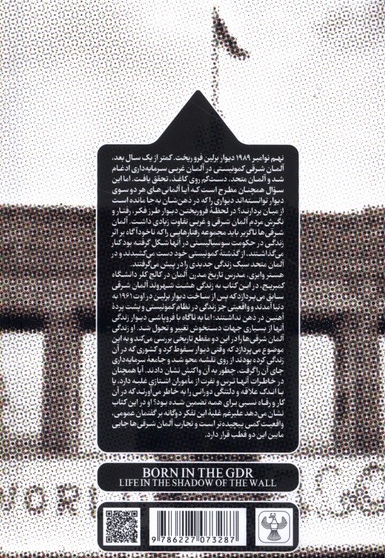 نهم نوامبر ۱۹۸۹ دیوار برلین فرو ریخت. کمتر از یک سال بعد،
آلمان شرقی کمونیستی در آلمان غربی سرمایه‌داری ادغام
شد و آلمان متحد، دست‌کم روی کاغذ، تحقق یافت. اما این
سؤال همچنان مطرح است که آیا آلمانی‌های هر دو سوی
دیوار توانسته‌اند دیواری را که در ذهن‌شان به جا مانده است
از میان بردارند؟ در لحظهٔ فروریختن دیوار طرز فکر، رفتار و
نگرش مردم آلمان شرقی و غربی تفاوت زیادی داشت. آلمان
شرقی‌ها ناگزیر باید مجموعه رفتارهایی را که ناخودآگاه بر اثر
زندگی در حکومت سوسیالیستی در آنها شکل گرفته بود کنار
می‌گذاشتند، از گذشتهٔ کمونیستی خود دست می‌کشیدند و در
آلمان متحد سبک زندگی جدیدی را در پیش می‌گرفتند.
هستر وایزی، مدرس تاریخ مدرن آلمان در کالج کلر دانشگاه
کمبریج، در این کتاب به زندگی هشت شهروند آلمان شرقی
سابق می‌پردازد که پس از ساخت دیوار برلین در اوت ۱۹۶۱ به
دنیا آمدند و واقعیتی جز زندگی در نظام کمونیستی و پشت پردهٔ
آهنین در ذهن نداشتند؛ اما به ناگاه با فروپاشی دیوار زندگی
آنها از بسیاری جهات دستخوش تغییر و تحول شد. او زندگی
آلمان شرقی‌ها را در این دو مقطع تاریخی بررسی می‌کند و به این
موضوع می‌پردازد که وقتی دیوار سقوط کرد و کشوری که در آن
زندگی کرده بودند از روی نقشه محو شد و جامعهٔ سرمایه‌داری
جای آن را گرفت، چطور به آن واکنش نشان دادند. آیا همچنان
در خاطرات آنها ترس و نفرت از مأموران اشتازی غلبه دارد، یا
با اندک علاقه و دلتنگی دورانی را به خاطر می‌آورند که در آن
کار و رفاه نسبی برای همه تضمین شده بود؟ او در این کتاب
نشان می‌دهد علیرغم غلبهٔ این تفکر دوگانه بر گفتمان عمومی،
واقعیت کمی پیچیده‌تر است و تجارب آلمان شرقی‌ها جایی
مابین این دو قطب قرار دارد.
BORN IN THE GDR
LIFE IN THE SHADOW OF THE WALL
9 786227 073287